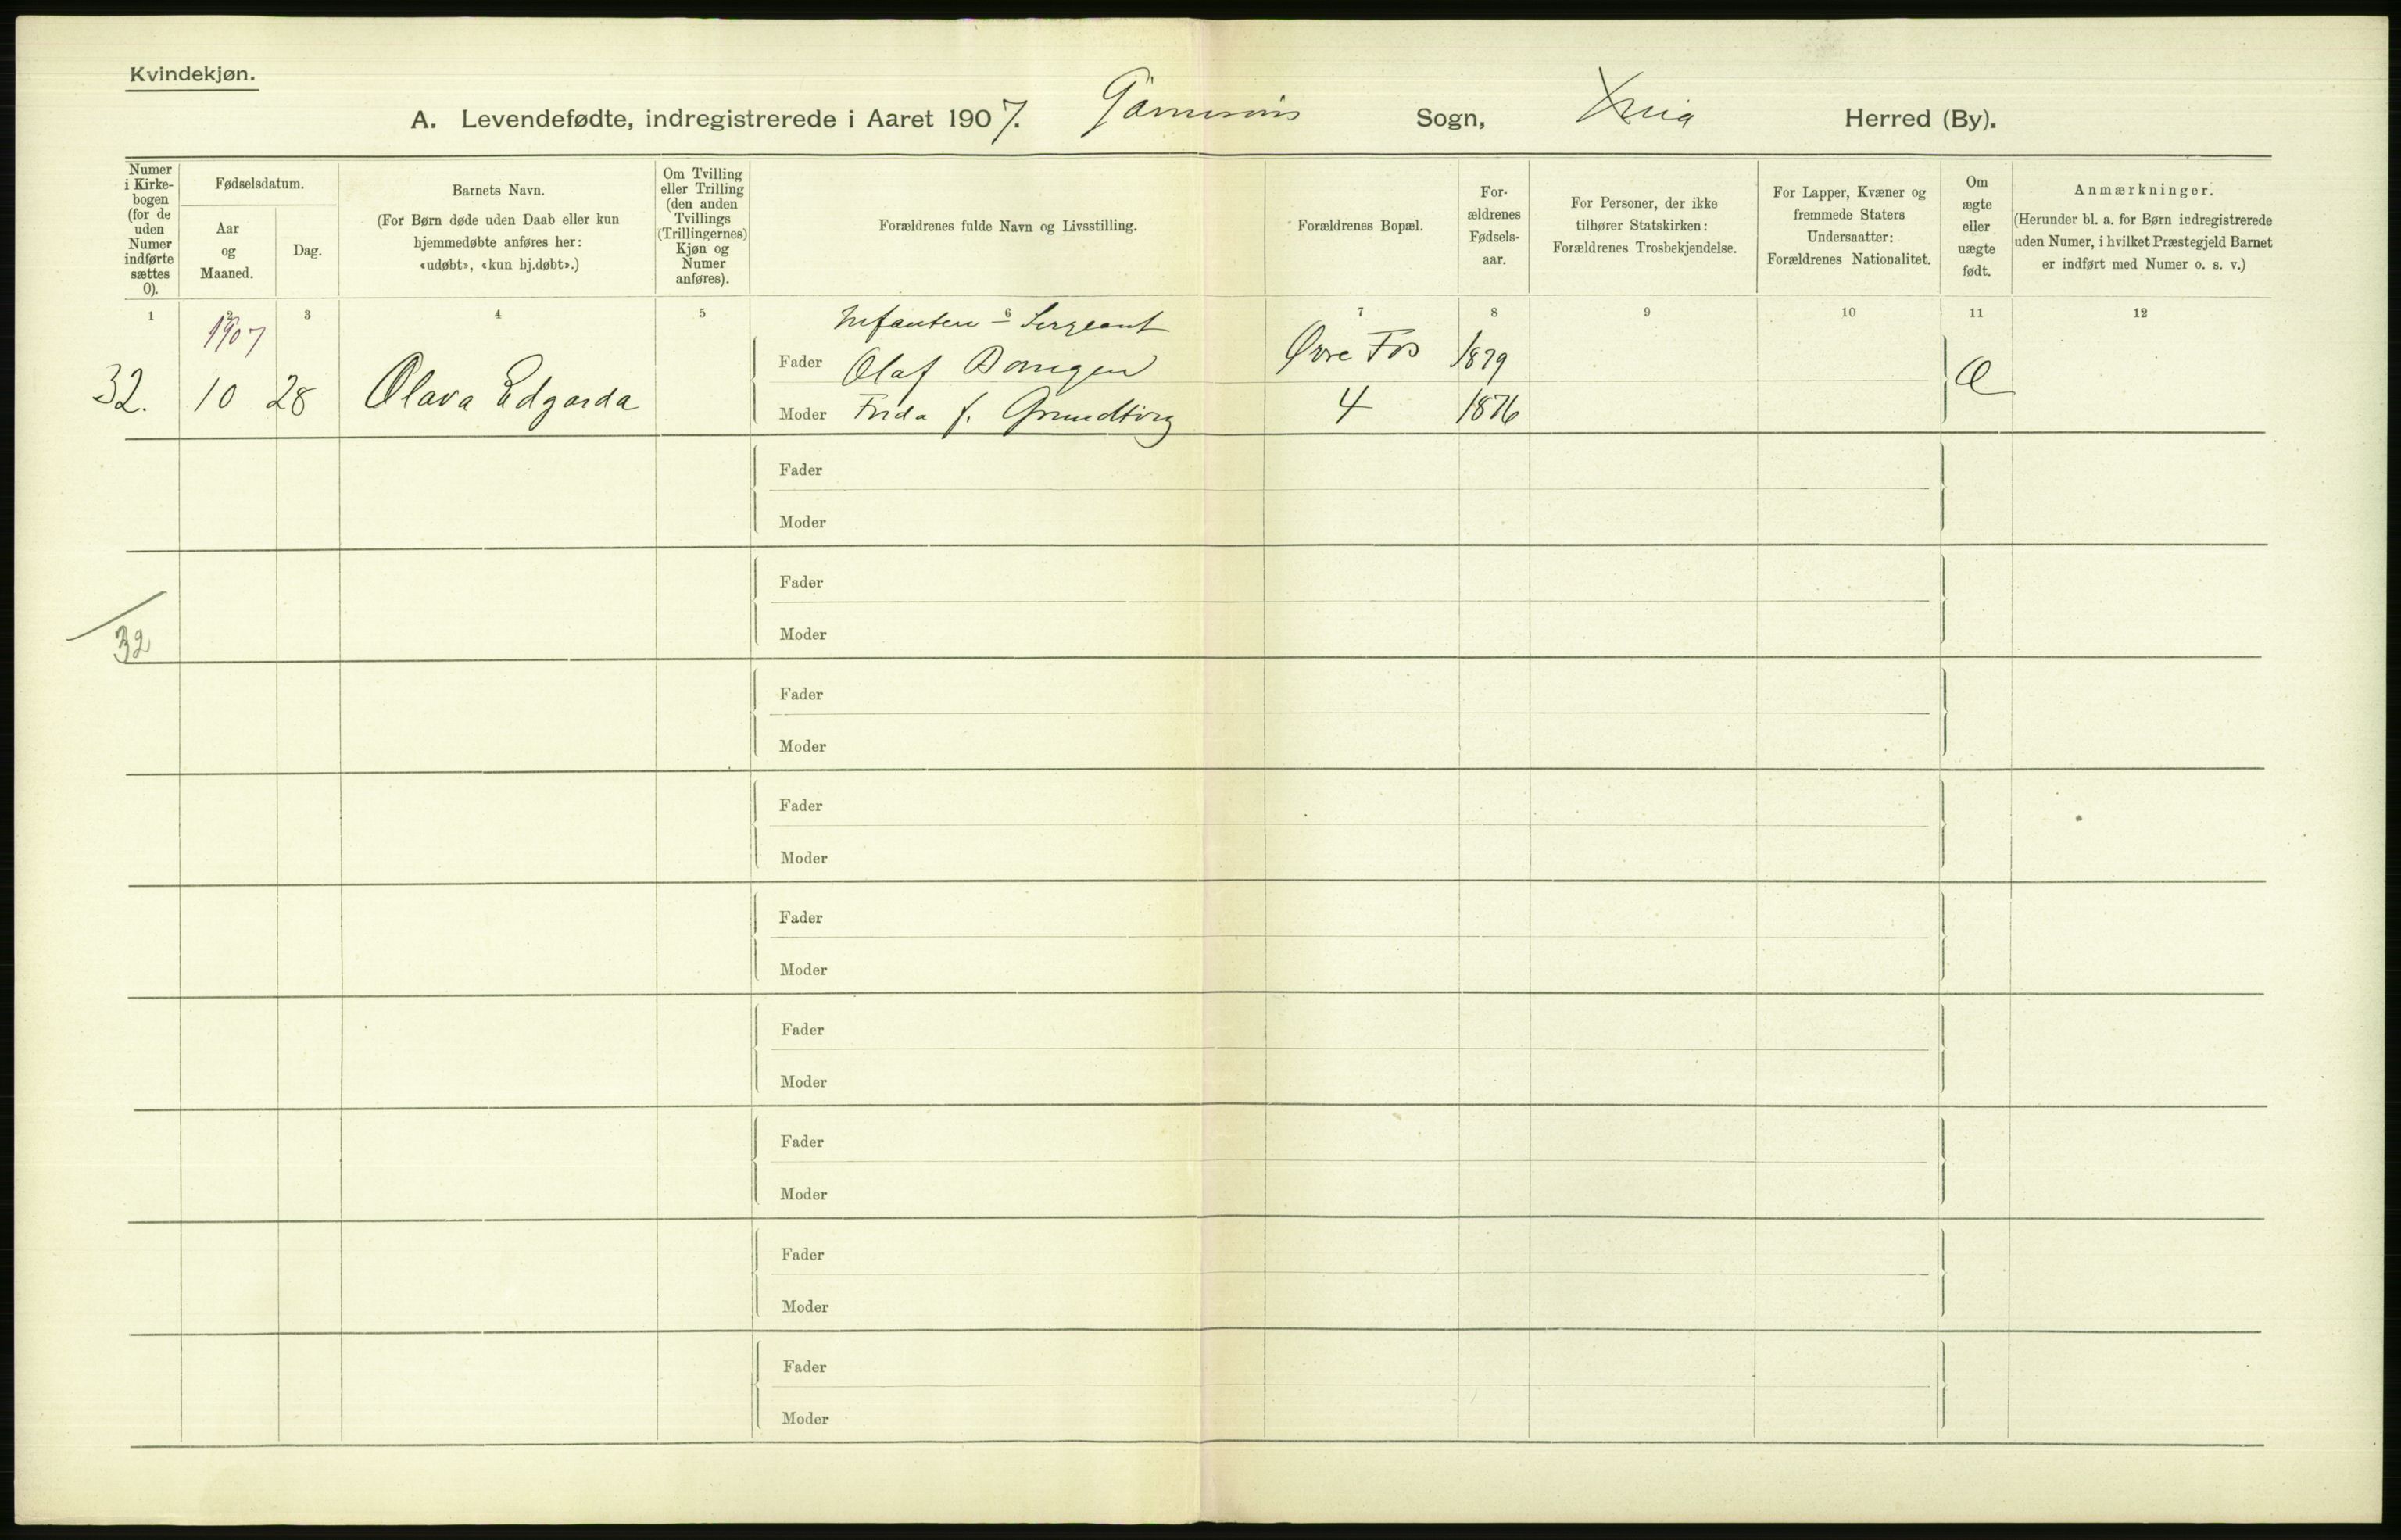 Kvindekjøn.
A. Levendefødte, indregistrerede i Aaret 1907. Sogn, Xnia Herred (By).
Numer
i Kirke-
bogen
(for de
uden
Numer
indførte
sættes
0).
Fødselsdatum.
Aar
og
Maaned.
Dag.
Barnets Navn.
(For Børn døde uden Daab eller kun
hjemmedøbte anføres her:
«udøbt», «kun hj.døbt».)
Om Tvilling
eller Trilling
(den anden
Tvillings
(Trillingernes)
Kjøn og
Numer
anføres).
Forældrenes fulde Navn og Livsstilling.
Forældrenes Bopæl.
For-
ældrenes
Fødsels-
aar.
For Personer, der ikke
tilhører Statskirken:
Forældrenes Trosbekjendelse.
For Lapper, Kvæner og
fremmede Staters
Undersaatter:
Forældrenes Nationalitet.
Om
ægte
eller
uægte
født.
Anmærkninger.
(Herunder bl. a. for Børn indregistrerede
uden Numer, i hvilket Præstegjeld Barnet
er indført med Numer o. s. v.)
1 2 3 4 5 6 7 8 9 10 11 12
1907 Infanteri-Sergeant
Fader Olaf Øvre Fos 1879
32. 10 28 Olava Edgarda Æ
Moder Frida f. Grundtvig 4 1876
Fader
Moder
Fader
Moder
32
Fader
Moder
Fader
Moder
Fader
Moder
Fader
Moder
Fader
Moder
Fader
Moder
Fader
Moder